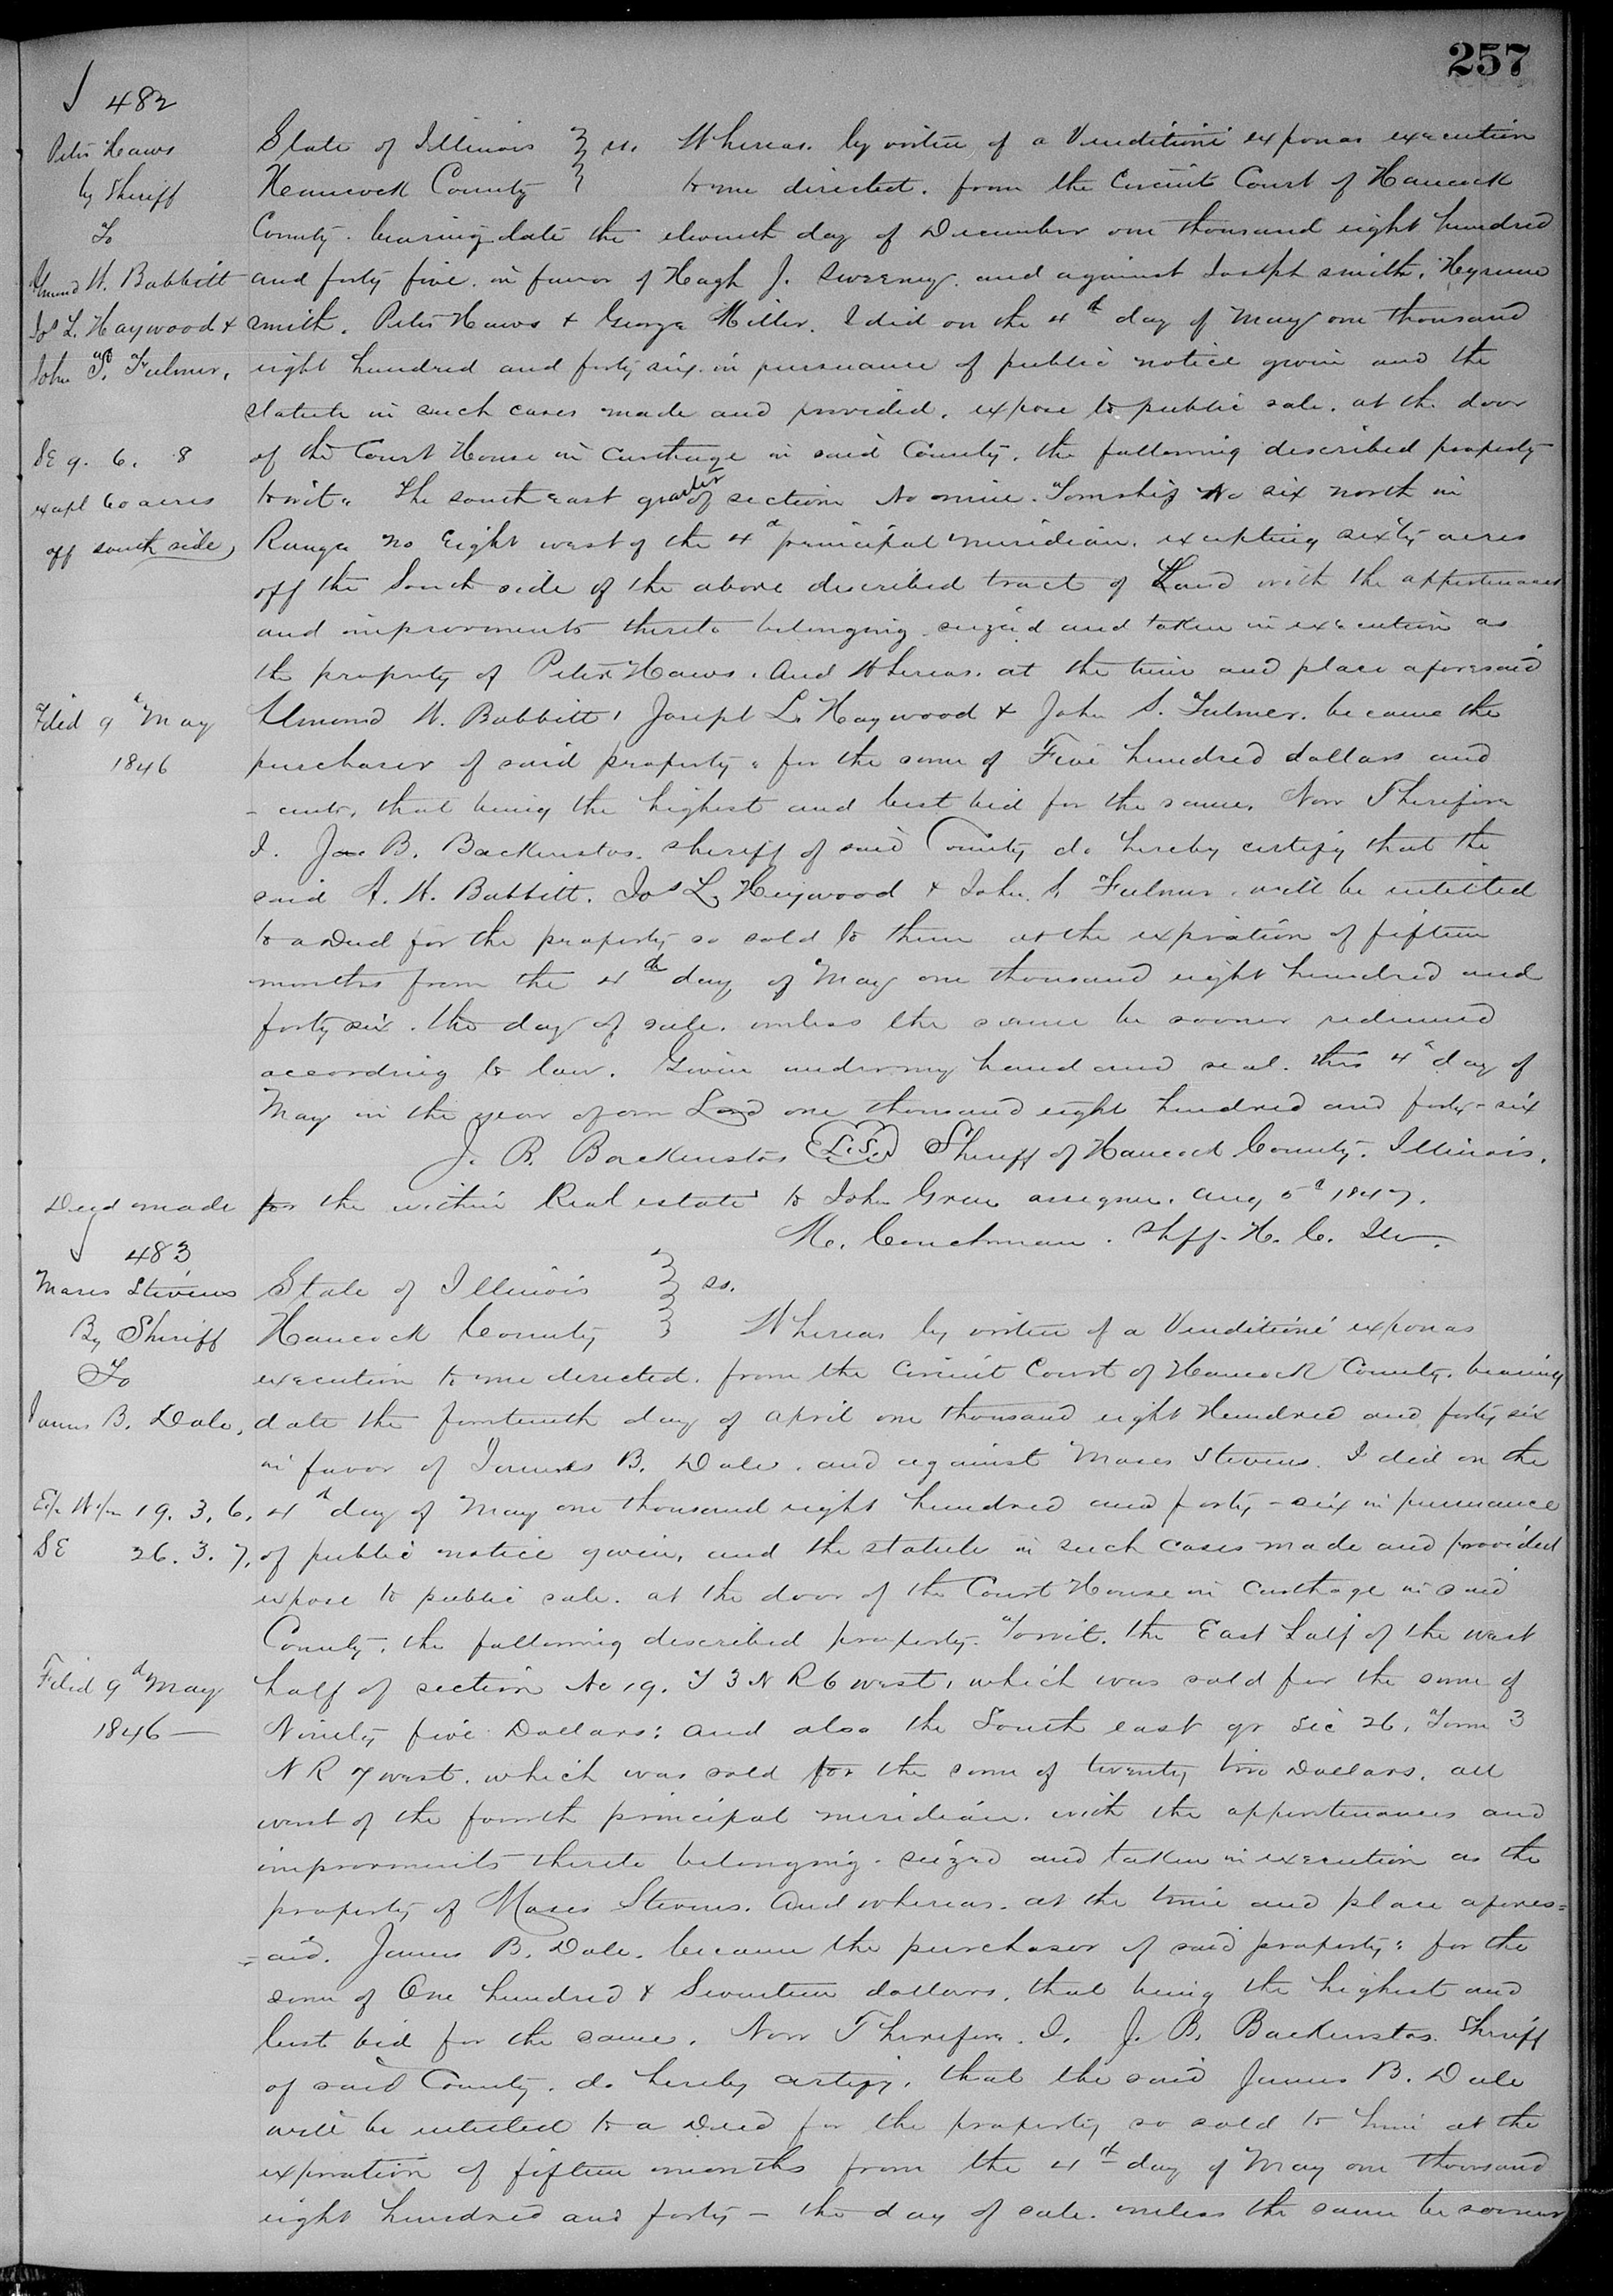 257
482
Peter Haws
by Sheriff
To
Almond W. Babbitt
Jos L. Haywood &
John S. Fulmer,
SE 9. 6. 8
exept 60 acres
off south side,
Filed 9th May
1846
State of Illinois } ss. Whereas. by virtue of a Venditioni exponas execution
Hancock County } to me directed. from the Circuit Court of Hancock
County. bearing date the eleventh day of December one thousand eight hundred
and forty five. in favor of Hugh J. Sweeney. and against Joseph Smith, Hyrum
Smith. Peter Haws & George Miller. I did on the 4th day of May one thousand
eight hundred and forty six. in pursuance of public notice given and the
statute in such cases made and provided. expose to public sale. at the door
of the Court House in Carthage in said County. the following described property
towit. The south east quarter of section No nine. Township No six north in
Range no Eight west of the 4th principal meridian. excepting sixty acres
off the South side of the above described tract of Land with the appertenances
and improvments thereto belonging seized and taken in execution as
the property of Peter Haws. And Whereas. at the time and place aforesaid
Almond W. Babbitt, Joseph L. Haywood & John S. Fulmer. became the
purchaser of said property. for the sum of Five hundred dollars and
- cents, that being the highest and best bid for the same. Now Therefore
I. Jac B. Backenstos. Sheriff of said County do hereby certify that the
said A. W. Babbitt. Jos L. Heywood & John S. Fulmer. will be intitled
to a Deed for the property so sold to them at the expiration of fifteen
months from the 4th day of May one thousand eight hundred and
forty six. the day of sale. unless the same be sooner redeemed
according to law. Given under my hand and seal. this 4th day of
May in the year of our Lord one thousand eight hundred and forty-six
J. B. Backenstos (L.S.) Sheriff of Hancock County. Illinois.
Deed made for the within Real estate to John Green assignee. Aug 5th 1847.
M. Couchman. Shff. H. C. Ills.
483
Moses Stevens
By Sheriff
To
James B. Dale,
E/2 W/2 19. 3. 6,
SE 26. 3. 7,
Filed 9th May
1846 —
State of Illinois } ss.
Hancock County } Whereas by virtue of a Venditioni exponas
execution to me directed. from the Circuit Court of Hancock County. bearing
date the fourteenth day of April one thousand eight Hundred and forty six
in favor of James B. Dale. and against Moses Stevens. I did on the
4th day of May one thousand eight hundred and forty-six in pursuance
of public notice given, and the statute in such cases made and provided
expose to public sale. at the door of the Court House in Carthage in said
County. the following described property. Towit. the East half of the west
half of section No 19. T 3 N R 6 west, which was sold for the sum of
Ninety five Dollars: and also the South east qr Sec 26. Town 3
N R 7 west. which was sold for the sum of twenty two Dollars. all
west of the fourth principal meridian. with the appertenances and
improvments thereto belonging. seized and taken in execution as the
property of Moses Stevens. And whereas. at the time and place afores=
=aid. James B. Dale. became the purchaser of said property: for the
sum of One hundred & Seventeen dollars, that being the highest and
best bid for the same. Now Therefore. I. J. B. Backenstos. Sheriff
of said County. do hereby certify, that the said James B. Dale
will be intitled to a Deed for the property so sold to him at the
expiration of fifteen months from the 4th day of May one thousand
eight hundred and forty - the day of sale. unless the same be sooner